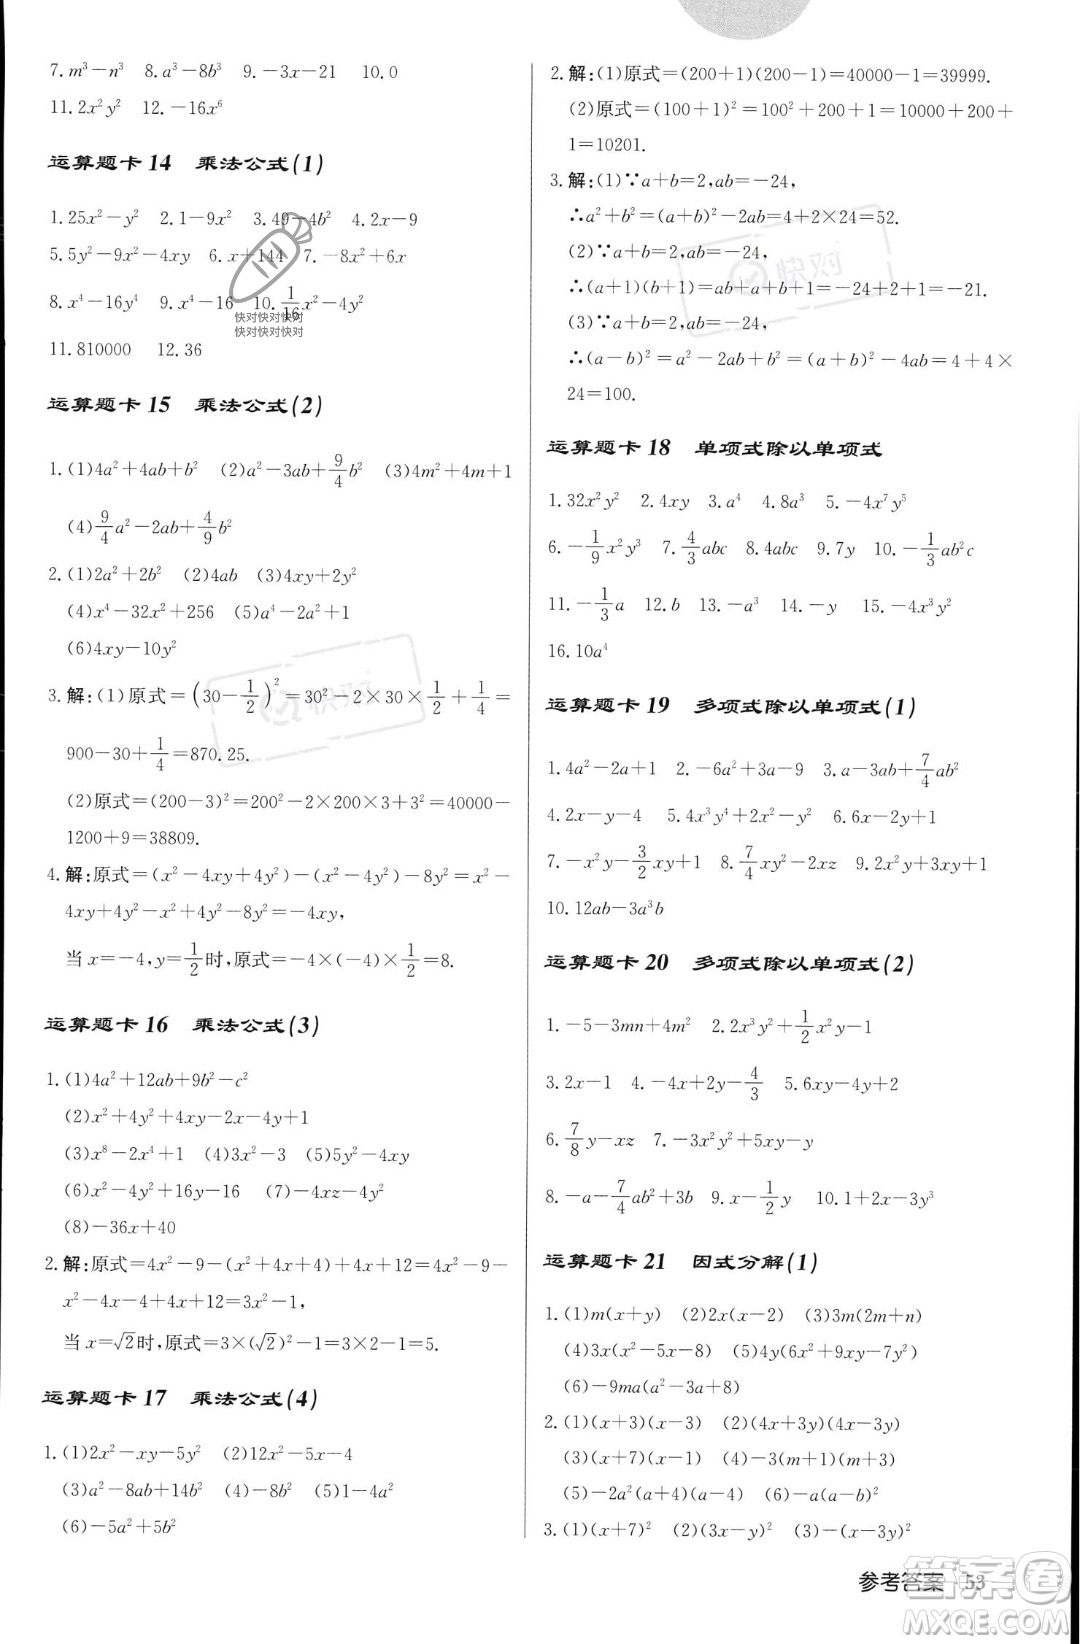 7.m³－n³　8.a³－8b³　9.－3x－21　10.0
11.2x²y²　12.－16x⁶
运算题卡 14　乘法公式(1)
1.25x²－y²　2.1－9x²　3.49－4b²　4.2x－9
5.5y²－9x²－4xy　6.x＋144　7.－8x²＋6x
8.x⁴－16y⁴　9.x⁴－16　10.1/16x²－4y²
快对快对快对
快对快对快对
11.810000　12.36
运算题卡 15　乘法公式(2)
1.(1)4a²＋4ab＋b²　(2)a²－3ab＋9/4b²　(3)4m²＋4m＋1
(4)9/4a²－2ab＋4/9b²
2.(1)2a²＋2b²　(2)4ab　(3)4xy＋2y²
(4)x⁴－32x²＋256　(5)a⁴－2a²＋1
(6)4xy－10y²
3.解:(1)原式＝(30－1/2)²＝30²－2×30×1/2＋1/4＝
900－30＋1/4＝870.25.
(2)原式＝(200－3)²＝200²－2×200×3＋3²＝40000－
1200＋9＝38809.
4.解:原式＝(x²－4xy＋4y²)－(x²－4y²)－8y²＝x²－
4xy＋4y²－x²＋4y²－8y²＝－4xy,
当 x＝－4,y＝1/2时,原式＝－4×(－4)×1/2＝8.
运算题卡 16　乘法公式(3)
1.(1)4a²＋12ab＋9b²－c²
(2)x²＋4y²＋4xy－2x－4y＋1
(3)x⁸－2x⁴＋1　(4)3x²－3　(5)5y²－4xy
(6)x²－4y²＋16y－16　(7)－4xz－4y²
(8)－36x＋40
2.解:原式＝4x²－9－(x²＋4x＋4)＋4x＋12＝4x²－9－
x²－4x－4＋4x＋12＝3x²－1,
当 x＝√2时,原式＝3×(√2)²－1＝3×2－1＝5.
运算题卡 17　乘法公式(4)
1.(1)2x²－xy－5y²　(2)12x²－5x－4
(3)a²－8ab＋14b²　(4)－8b²　(5)1－4x²
(6)－5a²＋5b²
2.解:(1)原式＝(200＋1)(200－1)＝40000－1＝39999.
(2)原式＝(100＋1)²＝100²＋200＋1＝10000＋200＋1
＝10201.
3.解:(1)∵a＋b＝2,ab＝－24,
∴a²＋b²＝(a＋b)²－2ab＝4＋2×24＝52.
(2)∵a＋b＝2,ab＝－24,
∴(a＋1)(b＋1)＝ab＋a＋b＋1＝－24＋2＋1＝－21.
(3)∵a＋b＝2,ab＝－24,
∴(a－b)²＝a²－2ab＋b²＝(a＋b)²－4ab＝4＋4×
24＝100.
运算题卡 18　单项式除以单项式
1.32x²y²　2.4xy　3.a⁴　4.8a³　5.－4x⁷y⁵
6.－1/9x²y³　7.4/3abc　8.4abc　9.7y　10.－1/3ab²c
11.－1/3a　12.b　13.－a³　14.－y　15.－4x³y²
16.10a⁴
运算题卡 19　多项式除以单项式(1)
1.4a²－2a＋1　2.－6a²＋3a－9　3.a－3ab＋7/4ab²
4.2x－y－4　5.4x³y⁴＋2x²－y²　6.6x－2y＋1
7.－x²y－3/2xy＋1　8.7/4xy²－2xz　9.2x²y＋3xy＋1
10.12ab－3a³b
运算题卡 20　多项式除以单项式(2)
1.－5－3mn＋4m²　2.2x³y²＋1/2x²y－1
3.2x－1　4.－4x＋2y－4/3　5.6xy－4y＋1
6.7/8y－xz　7.－2x²y²＋5xy－y
8.－a－7/4ab²＋3b　9.x－1/2y　10.1＋2x－3y³
运算题卡 21　因式分解(1)
1.(1)m(x＋y)　(2)2x(x－2)　(3)3m(2m＋n)
(4)3x(x²－5x－8)　(5)4y(6x²－3x＋7)
(6)－9ma(a²－3a＋3)
2.(1)(x＋3)(x－3)　(2)(4x＋3y)(4x－3y)
(3)(x＋5)(x－1)　(4)m²(m＋3)(m＋3)
(5)－2a²(a＋1)(a－1)　(6)－a(a－b)²
3.(1)(x＋7)²　(2)(3x－y)²　(3)－(x－8y)²
参考答案　53
快对
快对
答案圈
MXQE.COM